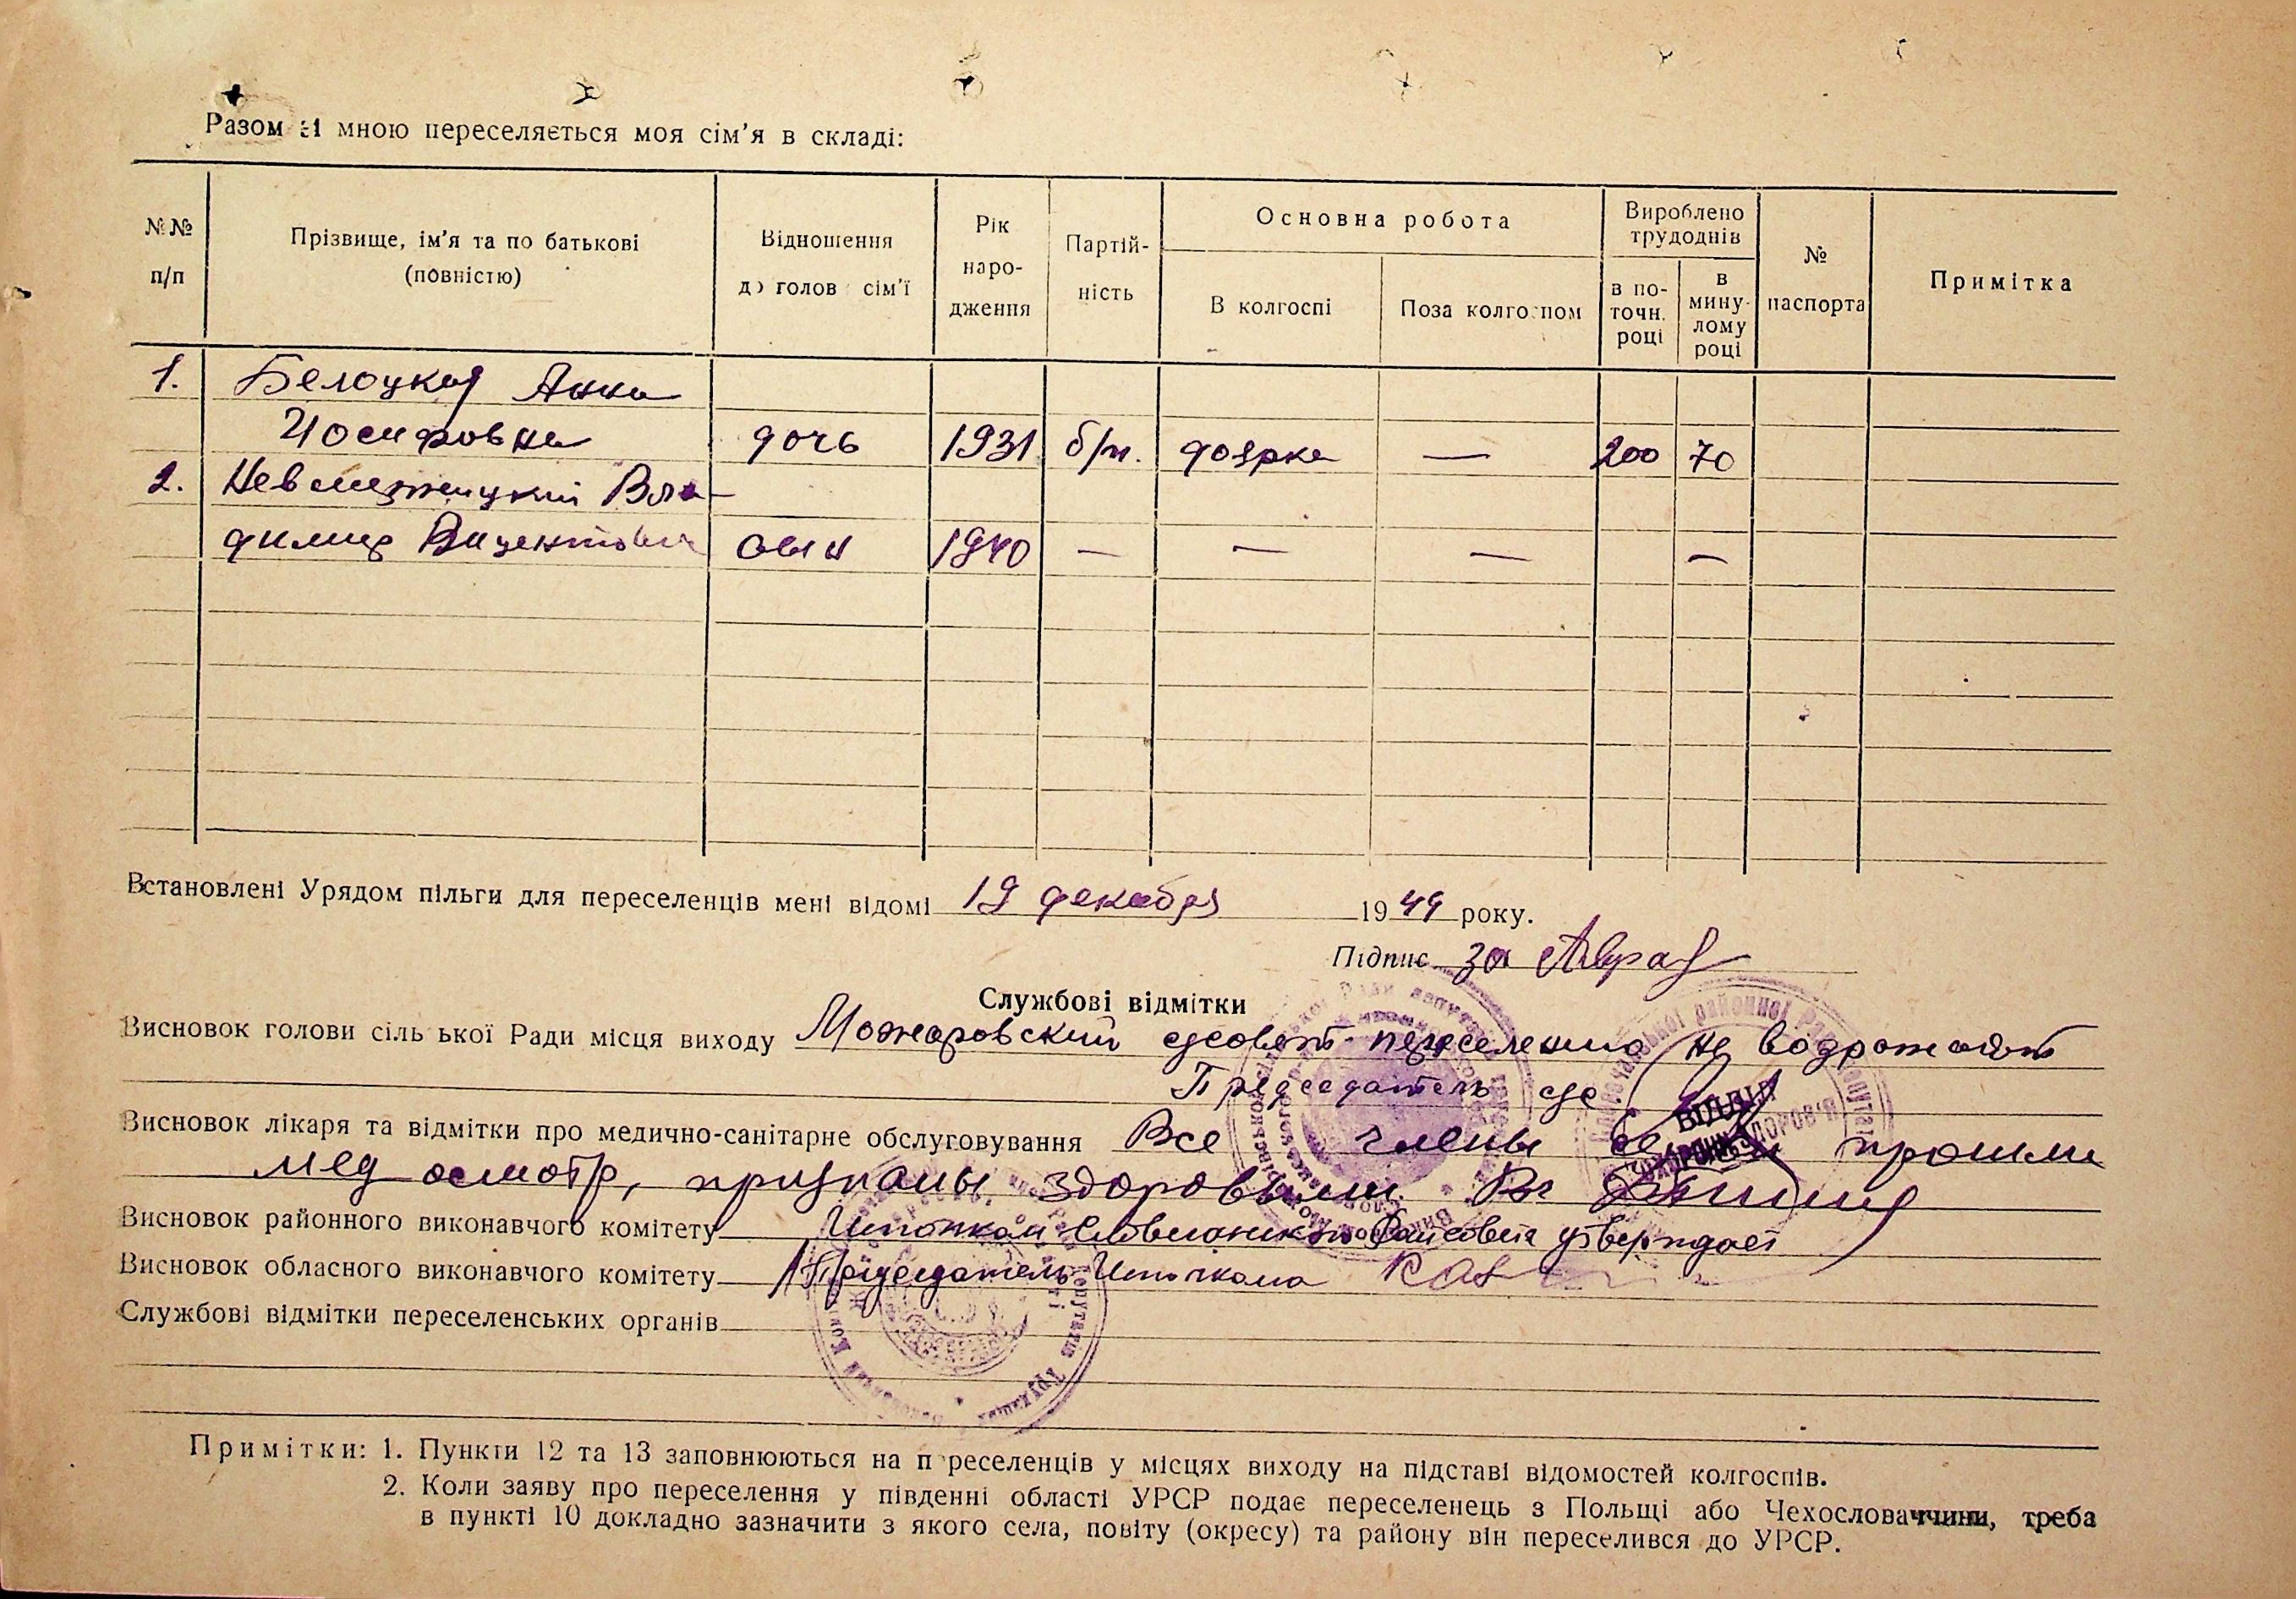 Разом зі мною переселяється моя сім'я в складі:
№№ п/п
Прізвище, ім'я та по батькові (повністю)
Відношення до голов сім'ї
Рік народження
Партійність
Основна робота
В колгоспі
Поза колгоспом
Вироблено трудоднів
в поточн. році
в минулому році
№ паспорта
Примітка
1. Белоцкая Анна
Иосифовна дочь 1931 б/п. доярка — 200 70
2. Невмержицкий Вла-
димир Вицентович сын 1940 — — — —
Встановлені Урядом пільги для переселенців мені відомі 19 декабря 1949 року.
Підпис за
Службові відмітки
Висновок голови сіль ької Ради місця виходу Можаровский сельсовет переселению не возражает
Председатель с/с
Висновок лікаря та відмітки про медично-санітарне обслуговування Все члены семьи прошли
мед осмотр, признаны здоровыми.
ВІДДІЛ
ОХОРОНИ ЗДОРОВ'Я
Висновок районного виконавчого комітету Исполком Словечанского Райсовета утверждает
Висновок обласного виконавчого комітету Председатель Исполкома
Службові відмітки переселенських органів
Примітки: 1. Пункти 12 та 13 заповнюються на п реселенців у місцях виходу на підставі відомостей колгоспів.
2. Коли заяву про переселення у південні області УРСР подає переселенець з Польщі або Чехословаччини, треба
в пункті 10 докладно зазначити з якого села, повіту (окресу) та району він переселився до УРСР.